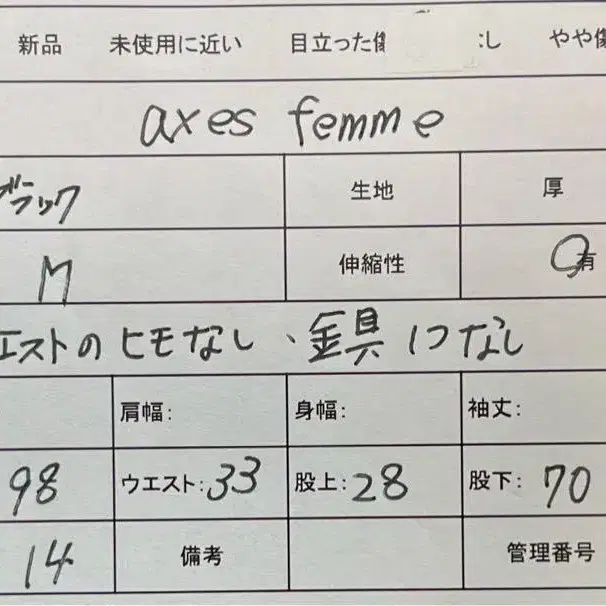 新品 未使用に近い 目立った傷 し やや傷
axes femme
ブラック 生地 厚
M 伸縮性 有
エストのヒモなし、金具1つなし
肩幅: 身幅: 袖丈:
98 ウエスト:33 股上:28 股下:70
14 備考 管理番号